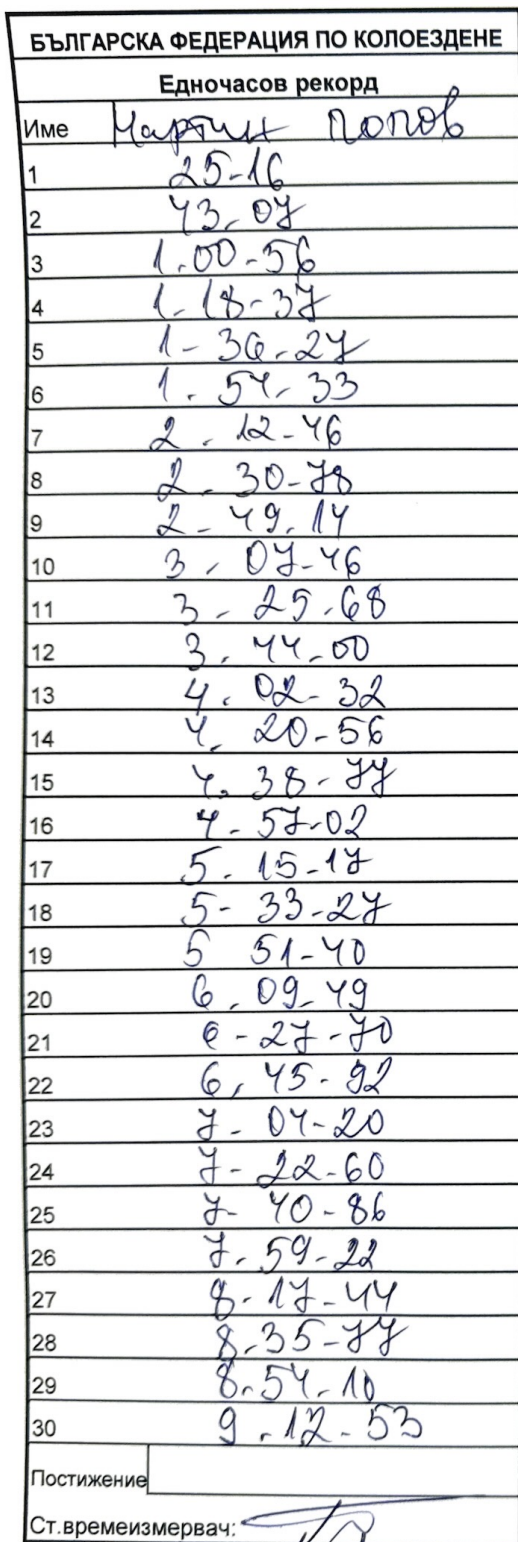 БЪЛГАРСКА ФЕДЕРАЦИЯ ПО КОЛОЕЗДЕНЕ
Едночасов рекорд
Име Мартин Попов
1 25-16
2 43.07
3 1.00-56
4 1-18-37
5 1-36-27
6 1.54-33
7 2.12-46
8 2.30-78
9 2-49.14
10 3.07-46
11 3-25.68
12 3.44.00
13 4.02-32
14 4.20-56
15 4.38-77
16 4-57-02
17 5.15-17
18 5-33-27
19 5 51-40
20 6.09-49
21 6-27-70
22 6.45-92
23 7-04-20
24 7-22-60
25 7-40-86
26 7.59-22
27 8-17-44
28 8.35-77
29 8.54-10
30 9.12-53
Постижение
Ст.времеизмервач: